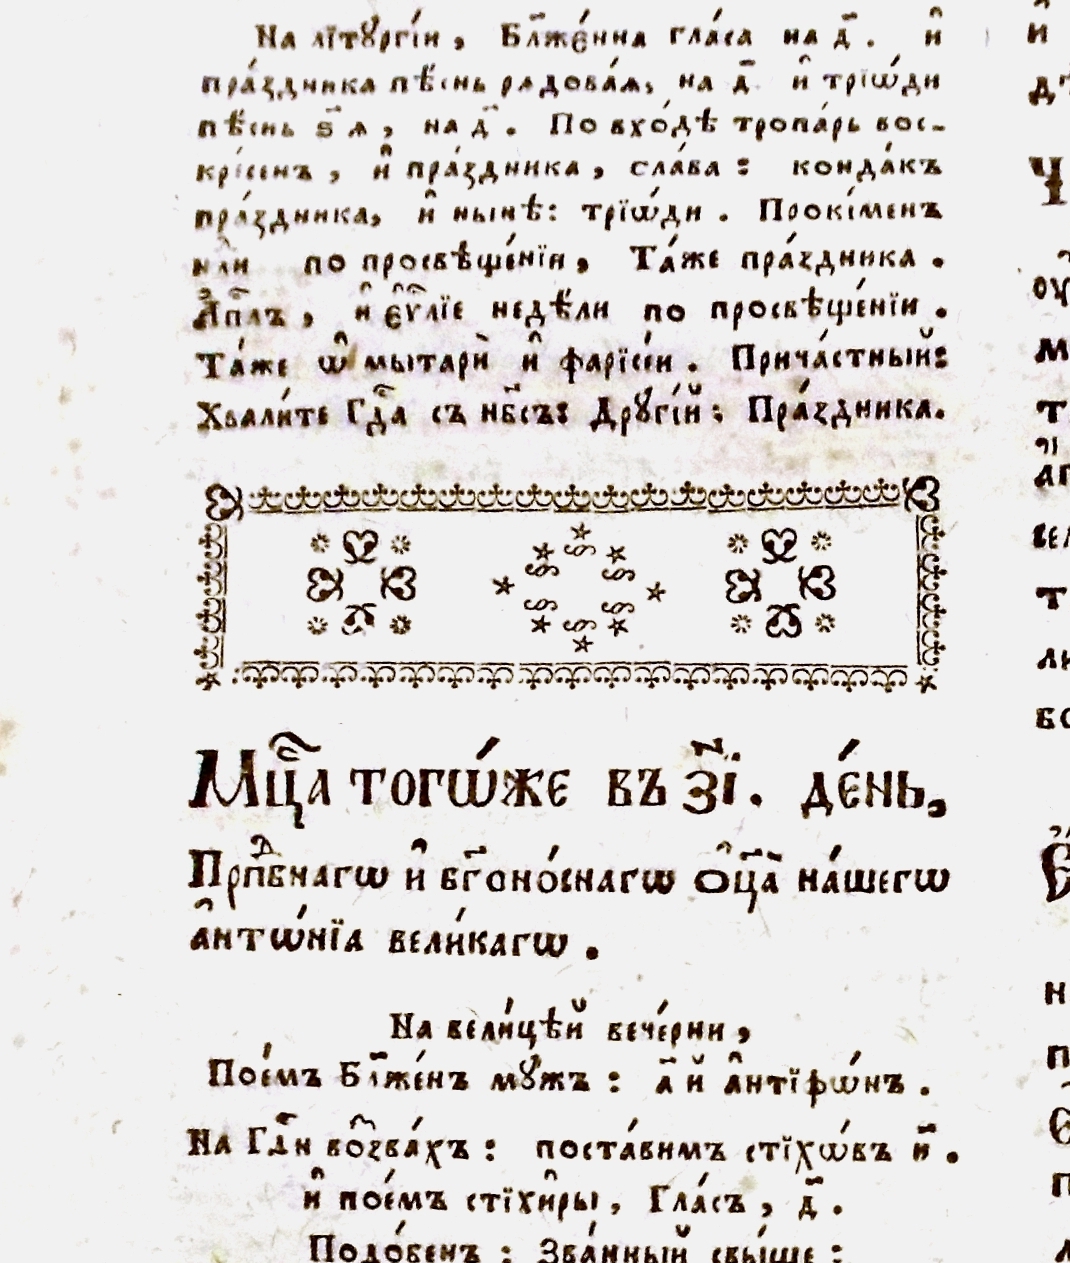 На лїтꙋргі́и, Бл҃же́нна гла́са на д҃. и҆
пра́здника пѣ́снь рядова́я, на д҃ и҆ трїѡ́ди
пѣ́снь ѕ҃ я, на д҃. По вхо́дѣ тропа́рь вос-
кре́сенъ, и҆ пра́здника, сла́ва: конда́къ
пра́здника, и҆ ны́нѣ: трїѡ́ди. Прокі́менъ
по просвѣще́нїи, Та́же пра́здника.
А҆пⷭ҇лъ, и҆ є҆ѵⷢ҇лїе недѣ́ли по просвѣще́нїи.
Та́же ѡ҆ мытарѝ и҆ фарїсе́и. Прича́стный:
Хвали́те Гдⷭ҇а съ нб҃съ: Дрꙋгі́й: Пра́здника.
Мцⷭ҇а тогѡ́же въ з҃ї. де́нь,
Прпⷣбнагѡ и҆ бг҃оно́снагѡ ѻ҆ц҃а̀ на́шегѡ
а҆нтѡ́нїа вели́кагѡ.
На вели́цѣй вече́рни,
Пое́мъ Бл҃же́нъ мꙋ́жъ: а҃ й а҆нтїфѡ́нъ.
На Гдⷭ҇и воззва́хъ: поста́вимъ стїхѡ́въ и҃.
и҆ пое́мъ стїхи̑ры, Гла́съ, д҃.
Подо́бенъ: Зва́нный свы́ше: